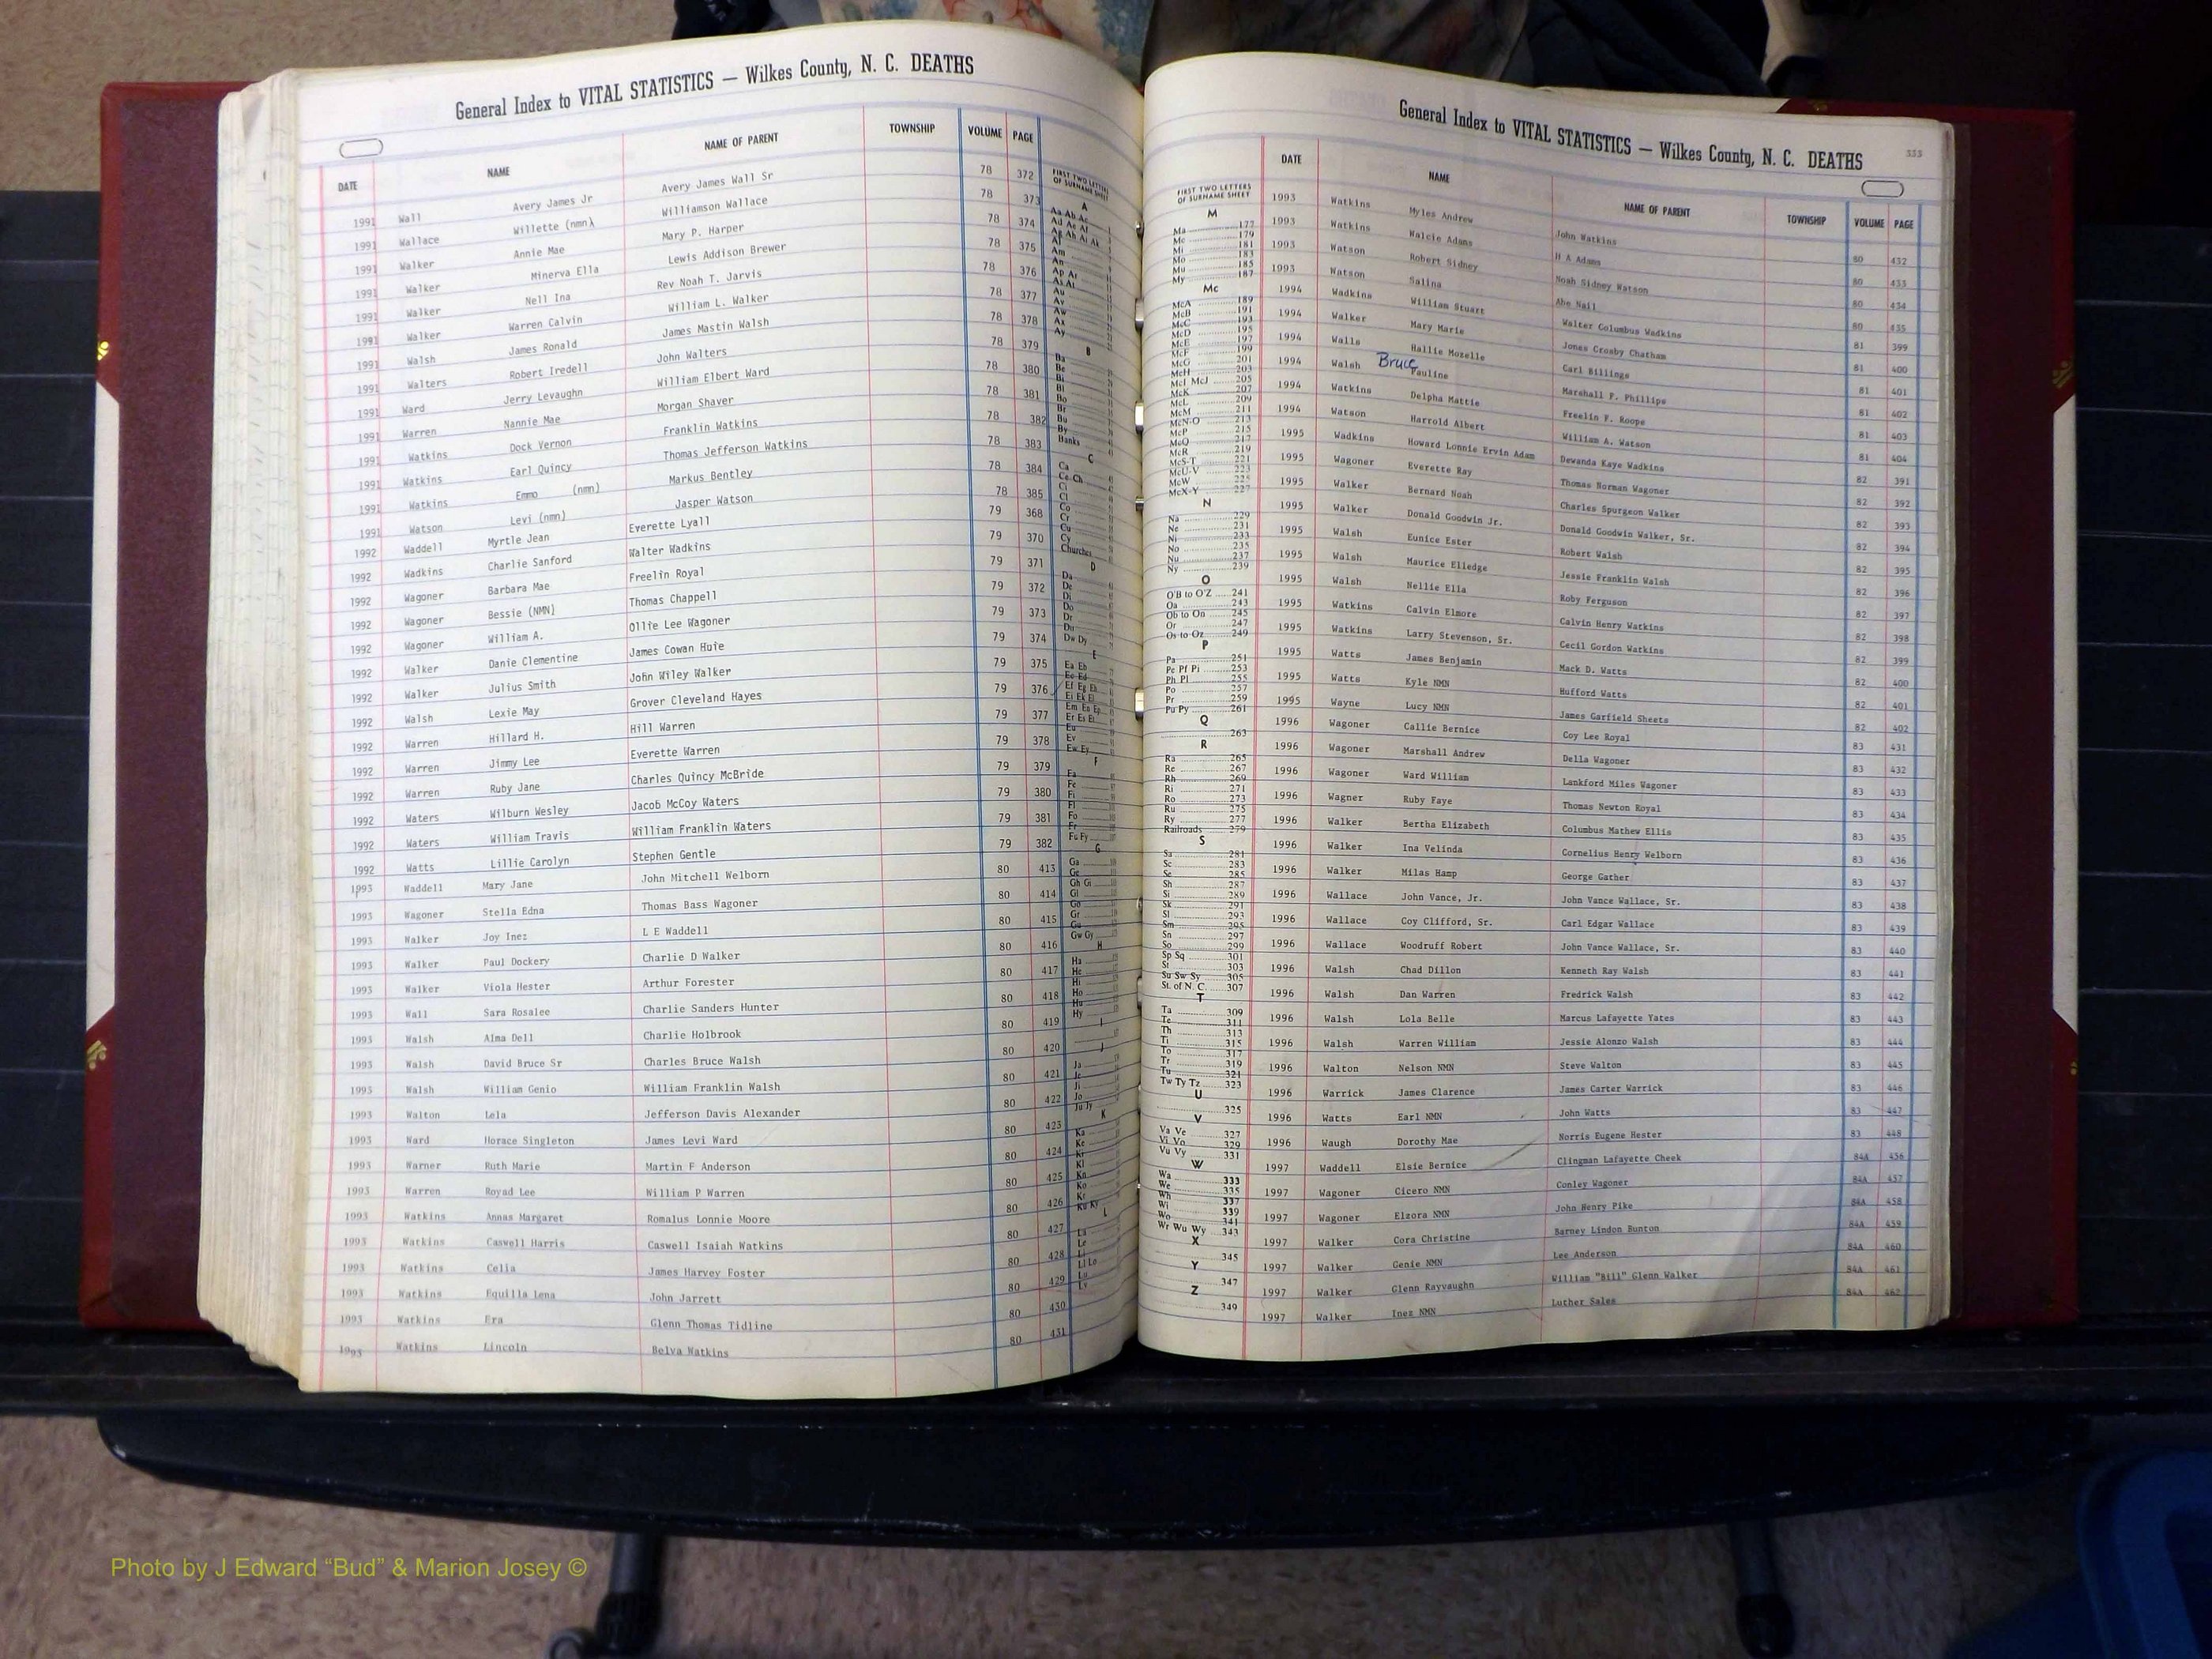 General Index to VITAL STATISTICS — Wilkes County, N. C. DEATHS
DATE NAME NAME OF PARENT TOWNSHIP VOLUME PAGE
1991 Wall Avery James Jr Avery James Wall Sr 78 372
1991 Wallace Willette (nmn) Williamson Wallace 78 373
1991 Walker Annie Mae Mary P. Harper 78 374
1991 Walker Minerva Ella Lewis Addison Brewer 78 375
1991 Walker Nell Ina Rev Noah T. Jarvis 78 376
1991 Walker Warren Calvin William L. Walker 78 377
1991 Walsh James Ronald James Mastin Walsh 78 378
1991 Walters Robert Iredell John Walters 78 379
1991 Ward Jerry Levaughn William Elbert Ward 78 380
1991 Warren Nannie Mae Morgan Shaver 78 381
1991 Watkins Dock Vernon Franklin Watkins 78 382
1991 Watkins Earl Quincy Thomas Jefferson Watkins 78 383
1991 Watkins Emmo (nmn) Markus Bentley 78 384
1991 Watson Levi (nmn) Jasper Watson 78 385
1992 Waddell Myrtle Jean Everette Lyall 79 368
1992 Wadkins Charlie Sanford Walter Wadkins 79 370
1992 Wagoner Barbara Mae Freelin Royal 79 371
1992 Wagoner Bessie (NMN) Thomas Chappell 79 372
1992 Wagoner William A. Ollie Lee Wagoner 79 373
1992 Walker Danie Clementine James Cowan Huie 79 374
1992 Walker Julius Smith John Wiley Walker 79 375
1992 Walsh Lexie May Grover Cleveland Hayes 79 376
1992 Warren Hillard H. Hill Warren 79 377
1992 Warren Jimmy Lee Everette Warren 79 378
1992 Warren Ruby Jane Charles Quincy McBride 79 379
1992 Waters Wilburn Wesley Jacob McCoy Waters 79 380
1992 Waters William Travis William Franklin Waters 79 381
1992 Watts Lillie Carolyn Stephen Gentle 79 382
1993 Waddell Mary Jane John Mitchell Welborn 80 413
1993 Wagoner Stella Edna Thomas Bass Wagoner 80 414
1993 Walker Joy Inez L E Waddell 80 415
1993 Walker Paul Dockery Charlie D Walker 80 416
1993 Walker Viola Hester Arthur Forester 80 417
1993 Wall Sara Rosalee Charlie Sanders Hunter 80 418
1993 Walsh Alma Dell Charlie Holbrook 80 419
1993 Walsh David Bruce Sr Charles Bruce Walsh 80 420
1993 Walsh William Genio William Franklin Walsh 80 421
1993 Walton Lela Jefferson Davis Alexander 80 422
1993 Ward Horace Singleton James Levi Ward 80 423
1993 Warner Ruth Marie Martin F Anderson 80 424
1993 Warren Royad Lee William P Warren 80 425
1993 Watkins Annas Margaret Romalus Lonnie Moore 80 426
1993 Watkins Caswell Harris Caswell Isaiah Watkins 80 427
1993 Watkins Celia James Harvey Foster 80 428
1993 Watkins Equilla Lena John Jarrett 80 429
1993 Watkins Era Glenn Thomas Tidline 80 430
1993 Watkins Lincoln Belva Watkins 80 431
FIRST TWO LETTERS
OF SURNAME SHEET
A
Aa Ab Ac
Ad Ae Af
Ag Ah Ai Ak
Al
Am
An
Ap Ar
As At
Au
Av
Aw
Ax
Ay
B
Ba
Be
Bi
Bl
Bo
Br
Bu
By
Banks
C
Ca
Ce Ch
Ci
Cl
Co
Cr
Cu
Cy
Churches
D
Da
De
Di
Do
Dr
Du
Dw Dy
E
Ea Eb
Ec Ed
Ef Eg Eh
Ei Ek El
Em En Ep
Er Es Et
Eu
Ev
Ew Ey
F
Fa
Fe
Fi
Fl
Fo
Fr
Fu Fy
G
Ga
Ge
Gh Gi
Gl
Go
Gr
Gu
Gw Gy
H
Ha
He
Hi
Ho
Hu
Hy
I
J
Ja
Je
Ji
Jo
Ju Jy
K
Ka
Ke
Ki
Kl
Kn
Ko
Kr
Ku Ky
L
La
Le
Li
Ll Lo
Lu
Ly
General Index to VITAL STATISTICS — Wilkes County, N. C. DEATHS 333
FIRST TWO LETTERS
OF SURNAME SHEET
M
Ma 177
Mc 179
Mi 181
Mo 183
Mu 185
My 187
Mc
McA 189
McB 191
McC 193
McD 195
McE 197
McF 199
McG 201
McH 203
McI McJ 205
McK 207
McL 209
McM 211
McN-O 213
McP 215
McQ 217
McR 219
McS-T 221
McU-V 223
McW 225
McX-Y 227
N
Na 229
Ne 231
Ni 233
No 235
Nu 237
Ny 239
O
O'B to O'Z 241
Oa 243
Ob to On 245
Or 247
Os to Oz 249
P
Pa 251
Pe Pf Pi 253
Ph Pl 255
Po 257
Pr 259
Pu Py 261
Q
263
R
Ra 265
Re 267
Rh 269
Ri 271
Ro 273
Ru 275
Ry 277
Railroads 279
S
Sa 281
Sc 283
Se 285
Sh 287
Si 289
Sk 291
Sl 293
Sm 295
Sn 297
So 299
Sp Sq 301
St 303
Su Sw Sy 305
St. of N. C. 307
T
Ta 309
Te 311
Th 313
Ti 315
To 317
Tr 319
Tu 321
Tw Ty Tz 323
U
325
V
Va Ve 327
Vi Vo 329
Vu Vy 331
W
Wa 333
We 335
Wh 337
Wi 339
Wo 341
Wr Wu Wy 343
X
345
Y
347
Z
349
DATE NAME NAME OF PARENT TOWNSHIP VOLUME PAGE
1993 Watkins Myles Andrew John Watkins 80 432
1993 Watkins Walcie Adams H A Adams 80 433
1993 Watson Robert Sidney Noah Sidney Watson 80 434
1993 Watson Salina Abe Nail 80 435
1994 Wadkins William Stuart Walter Columbus Wadkins 81 399
1994 Walker Mary Marie Jones Crosby Chatham 81 400
1994 Walls Hallie Mozelle Carl Billings 81 401
1994 Walsh Bruce Pauline Marshall F. Phillips 81 402
1994 Watkins Delpha Mattie Freelin F. Roope 81 403
1994 Watson Harrold Albert William A. Watson 81 404
1995 Wadkins Howard Lonnie Ervin Adam Dewanda Kaye Wadkins 82 391
1995 Wagoner Everette Ray Thomas Norman Wagoner 82 392
1995 Walker Bernard Noah Charles Spurgeon Walker 82 393
1995 Walker Donald Goodwin Jr. Donald Goodwin Walker, Sr. 82 394
1995 Walsh Eunice Ester Robert Walsh 82 395
1995 Walsh Maurice Elledge Jessie Franklin Walsh 82 396
1995 Walsh Nellie Ella Roby Ferguson 82 397
1995 Watkins Calvin Elmore Calvin Henry Watkins 82 398
1995 Watkins Larry Stevenson, Sr. Cecil Gordon Watkins 82 399
1995 Watts James Benjamin Mack D. Watts 82 400
1995 Watts Kyle NMN Hufford Watts 82 401
1995 Wayne Lucy NMN James Garfield Sheets 82 402
1996 Wagoner Callie Bernice Coy Lee Royal 83 431
1996 Wagoner Marshall Andrew Della Wagoner 83 432
1996 Wagoner Ward William Lankford Miles Wagoner 83 433
1996 Wagner Ruby Faye Thomas Newton Royal 83 434
1996 Walker Bertha Elizabeth Columbus Mathew Ellis 83 435
1996 Walker Ina Velinda Cornelius Henry Welborn 83 436
1996 Walker Milas Hamp George Gather 83 437
1996 Wallace John Vance, Jr. John Vance Wallace, Sr. 83 438
1996 Wallace Coy Clifford, Sr. Carl Edgar Wallace 83 439
1996 Wallace Woodruff Robert John Vance Wallace, Sr. 83 440
1996 Walsh Chad Dillon Kenneth Ray Walsh 83 441
1996 Walsh Dan Warren Fredrick Walsh 83 442
1996 Walsh Lola Belle Marcus Lafayette Yates 83 443
1996 Walsh Warren William Jessie Alonzo Walsh 83 444
1996 Walton Nelson NMN Steve Walton 83 445
1996 Warrick James Clarence James Carter Warrick 83 446
1996 Watts Earl NMN John Watts 83 447
1996 Waugh Dorothy Mae Norris Eugene Hester 83 448
1997 Waddell Elsie Bernice Clingman Lafayette Cheek 84A 456
1997 Wagoner Cicero NMN Conley Wagoner 84A 457
1997 Wagoner Elzora NMN John Henry Pike 84A 458
1997 Walker Cora Christine Barney Lindon Bunton 84A 459
1997 Walker Genie NMN Lee Anderson 84A 460
1997 Walker Glenn Rayvaughn William "Bill" Glenn Walker 84A 461
1997 Walker Inez NMN Luther Sales 84A 462
Photo by J Edward “Bud” & Marion Josey ©